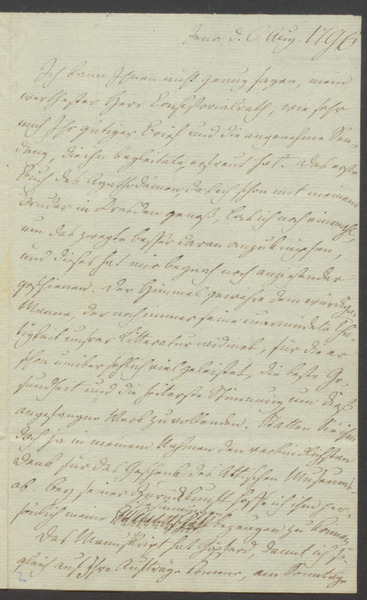 Jena d. 6 Aug. 1796
Ich kann Ihnen nicht genug sagen, mein
werthester Herr Consistorialrath, wie sehr
mich Ihr gütiger Brief und die angenehme Sen-
dung, die ihn begleitete, erfreut hat. Das erste
Buch des Agathodämon, das ich schon mit meinem
Bruder in Dresden genoß, las ich noch einmahl,
um das zweyte besser daran anzuknüpfen,
und dieses hat mir beynah noch anziehender
geschienen. Der Himmel gewähre dem würdigen
Manne, der noch immer seine unermüdete Thä-
tigkeit unsrer Litteratur widmet, für die er
schon unübersehlich viel geleistet, die beste Ge-
sundheit und die heiterste Stimmung um dieß
angefangne Werk zu vollenden. Statten Sie ihm
doch ja in meinem Nahmen den verbindlichsten
Dank für das Geschenk des Attischen Museums
ab. Bey seiner Zurückkunft hoffe ich ihm per-
sönlich meine bezeugen zu können.
Das Manuskript hat Göpferd, damit ich so-
gleich auf Ihre Aufträge komme, am Sonntage
2